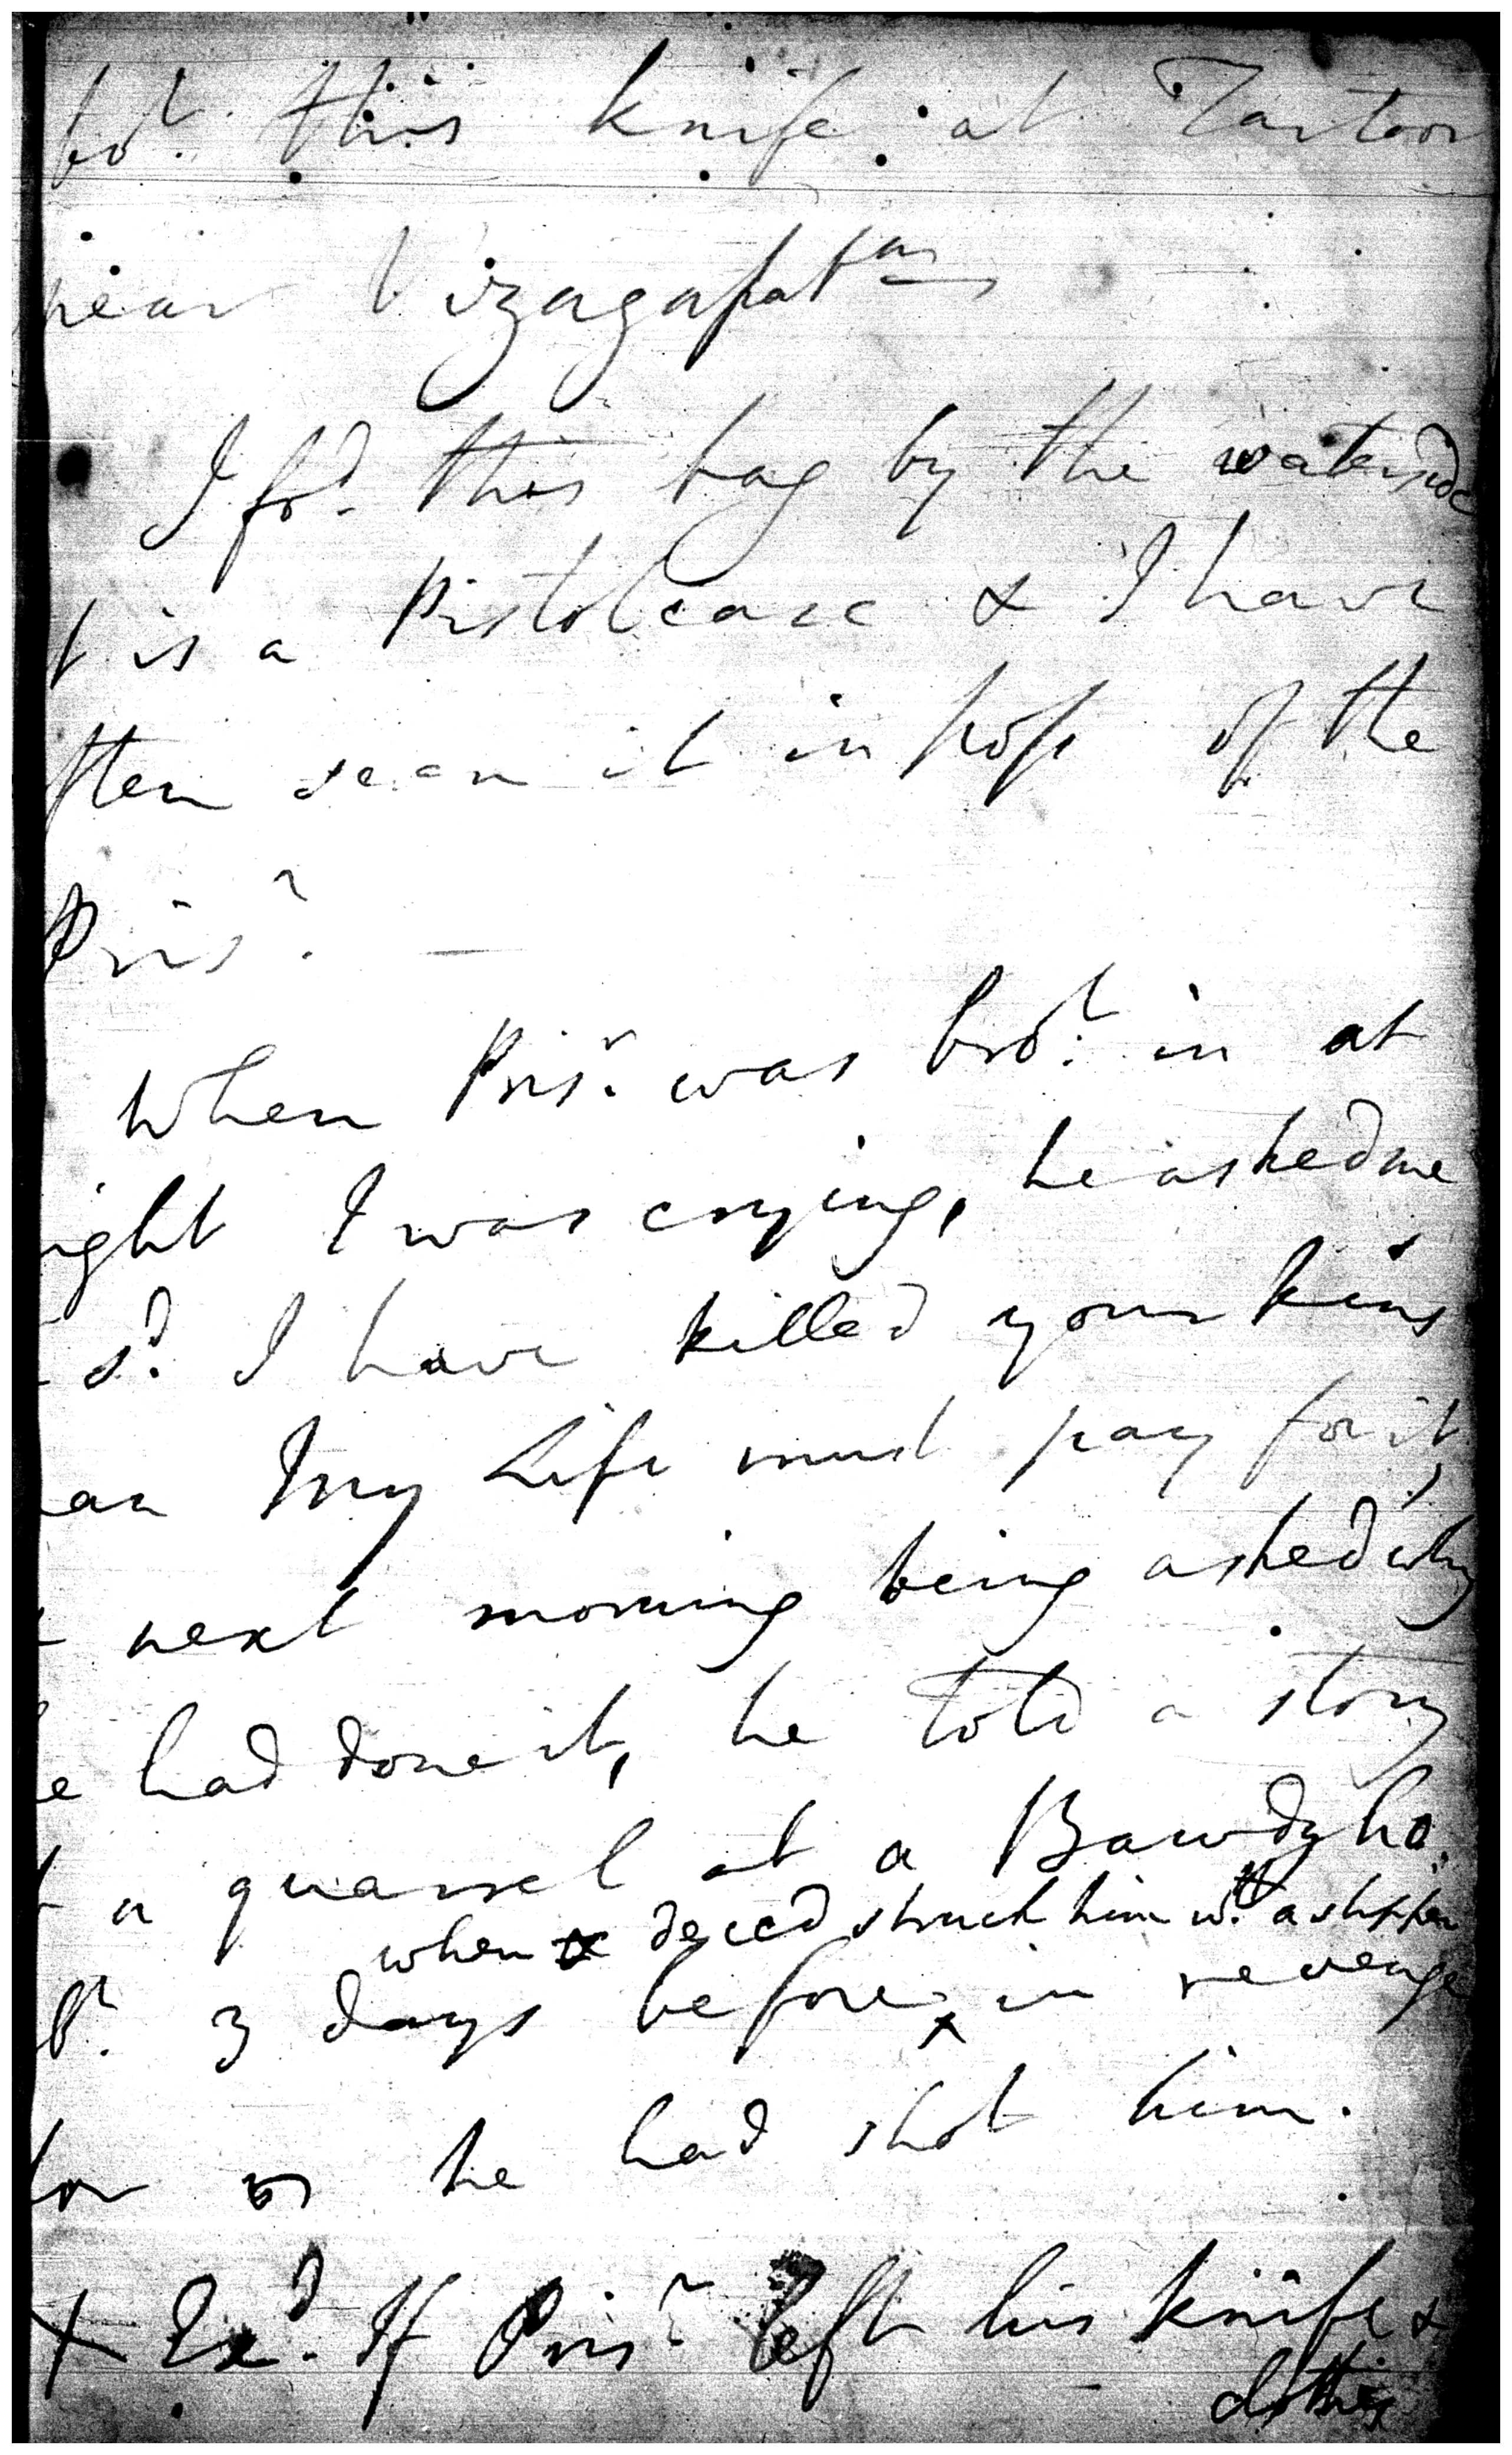 bo.t this knife at Tartoor
near Vizagapatam
I fo.d this bag by the waterside
t is a Pistolcase & I have
ften seen it in poss of the
Pris.r —
When Pris.r was bro.t in at
ight I was crying, he asked me
s.d I have killed your kins
an My Life must pay for it,
next morning being asked why
e had done it, he told a story
a quarrel at a Bawdyho.
when deced struck him w.th a slipper
b.t 3 days before in revenge
for he had shot him.
X Ex.d If Pris.r left his knife &
clothes